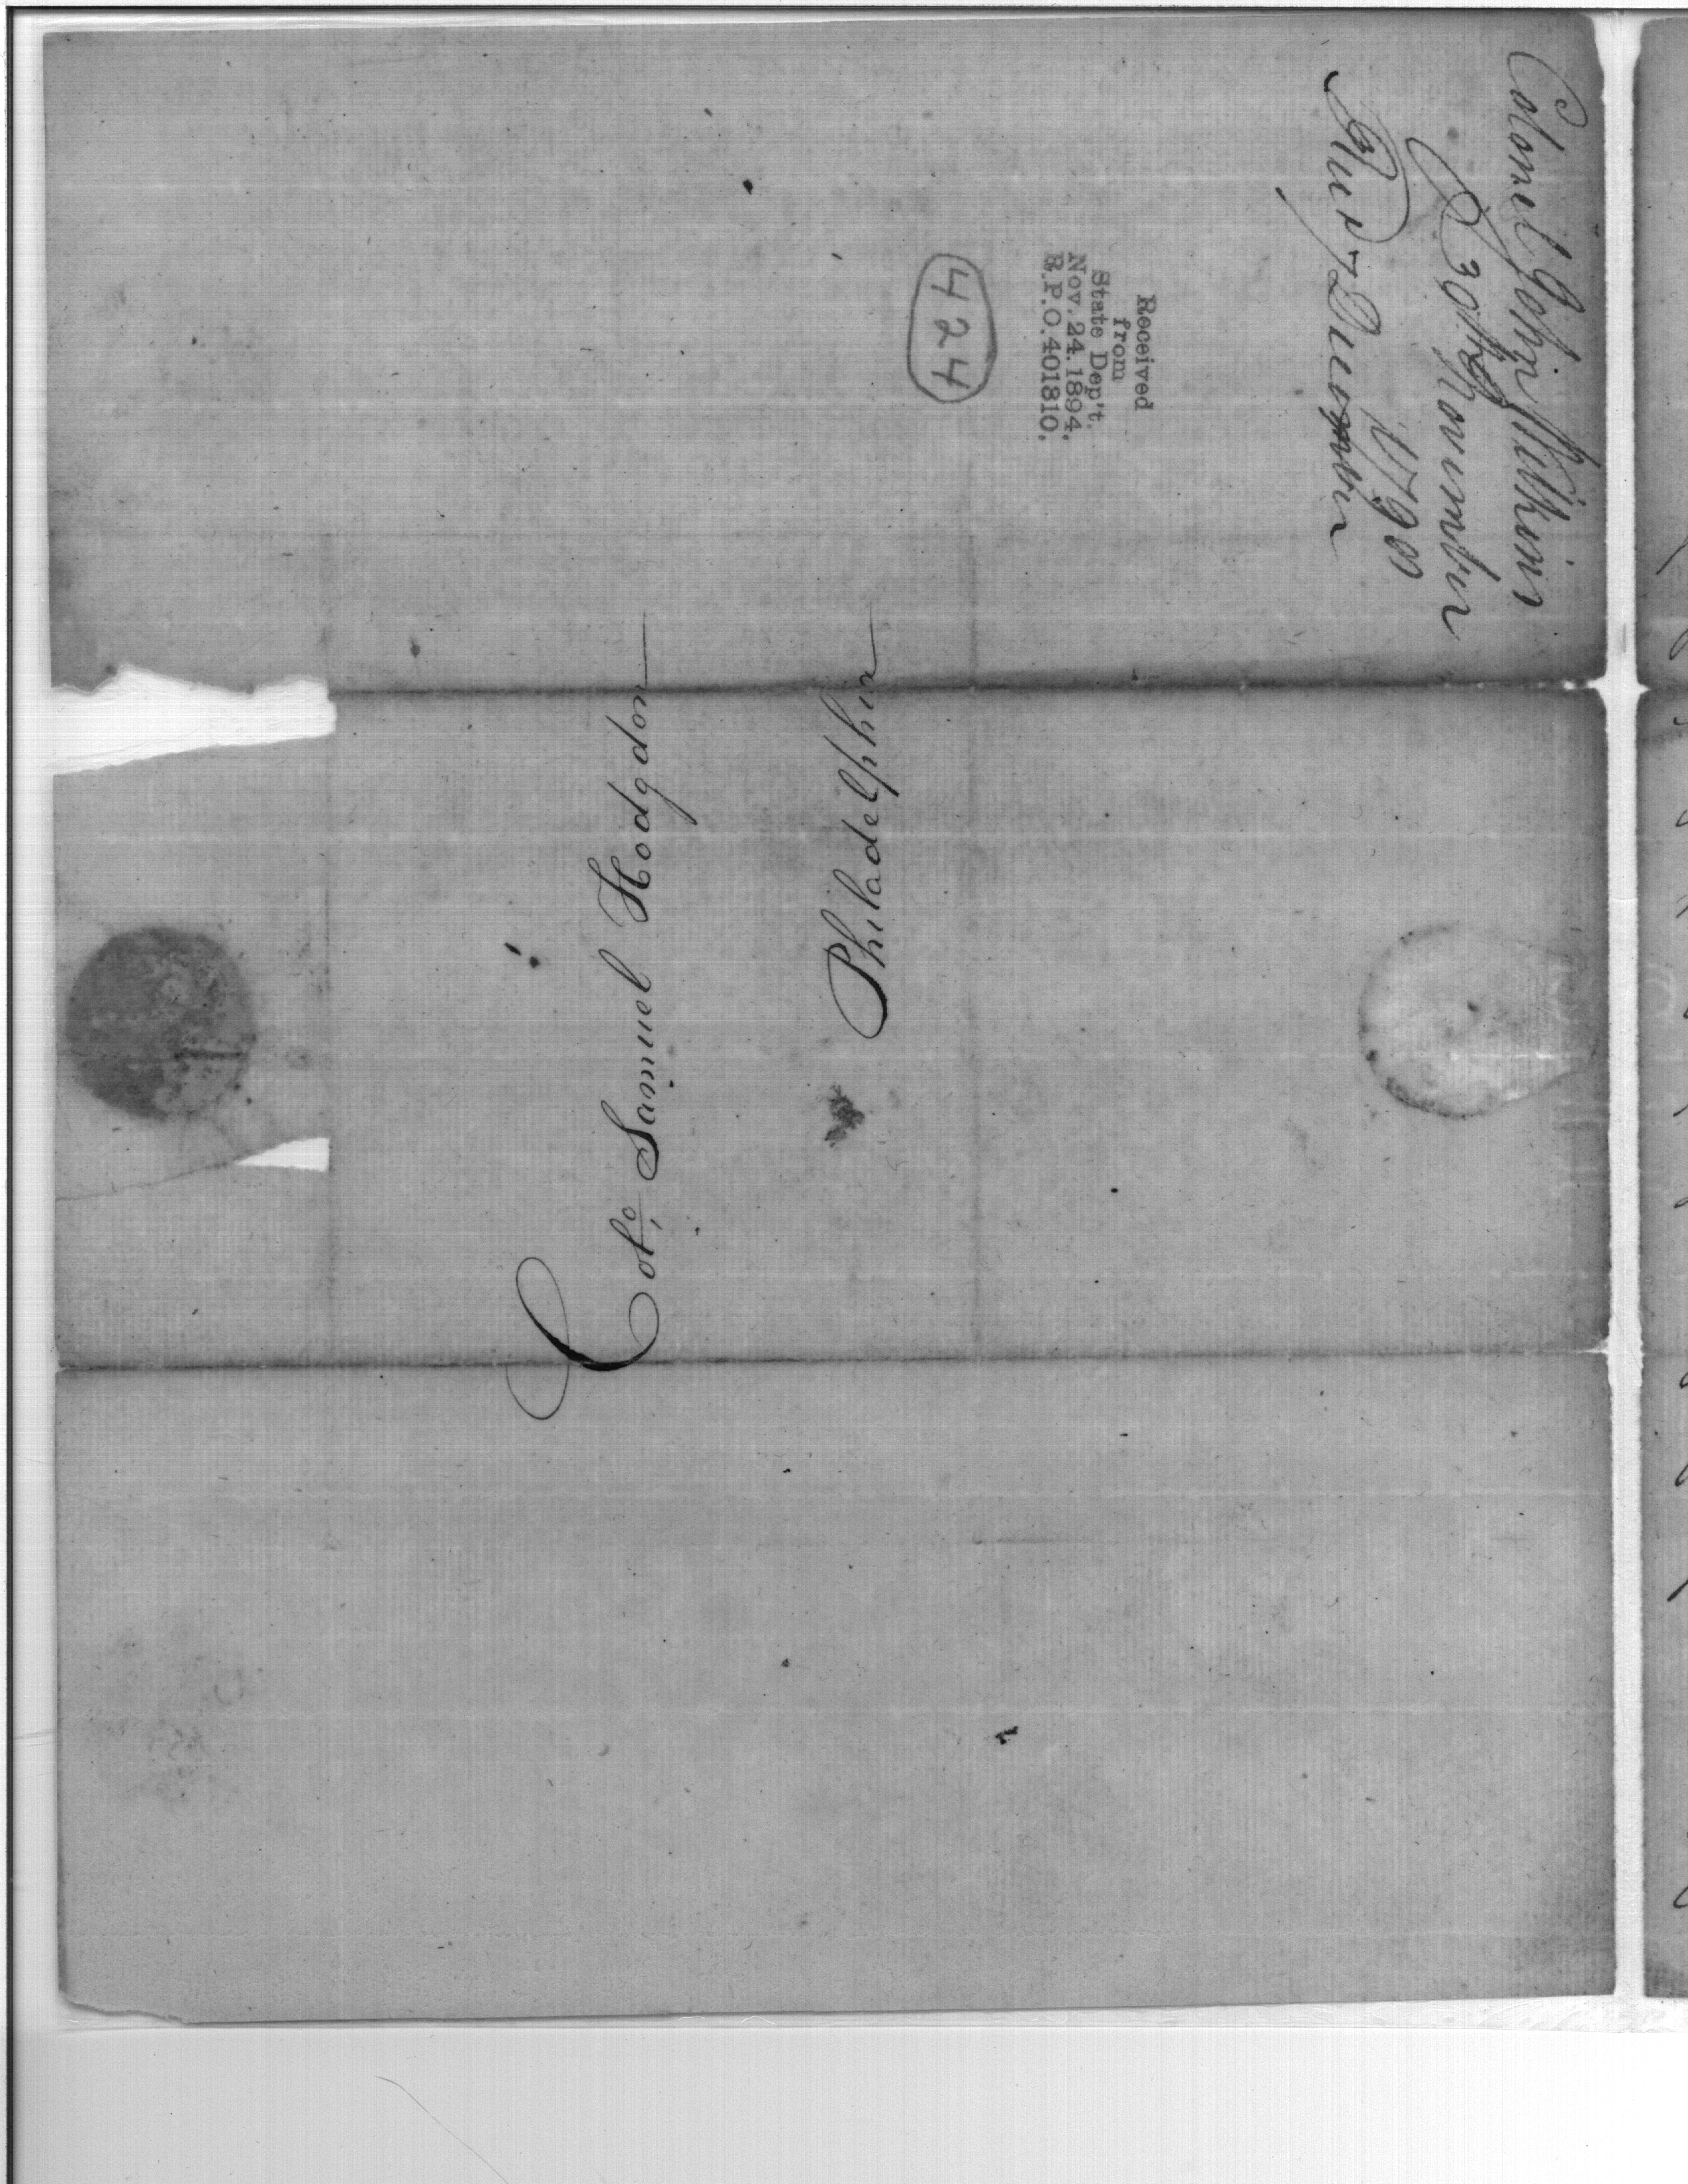 Colonel John Wilkins
30th November
1798
Rec'd December
Received
from
State Dep't.
Nov. 24. 1894.
R.P.O. 401810.
424
Colo, Samuel Hodgdon
Philadelphia